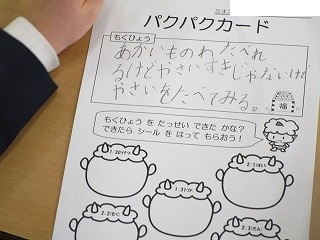 パクパクカード
もくひょう
あかいものわたべれ
るけどやさいすきじゃないけど
やさいをたべてみる。
福
もくひょう を たっせい できた かな?
できたら シール を はって もらおう!
1/30(げつ)
1/31(か)
2/1(すい)
2/2(もく)
2/3(きん)